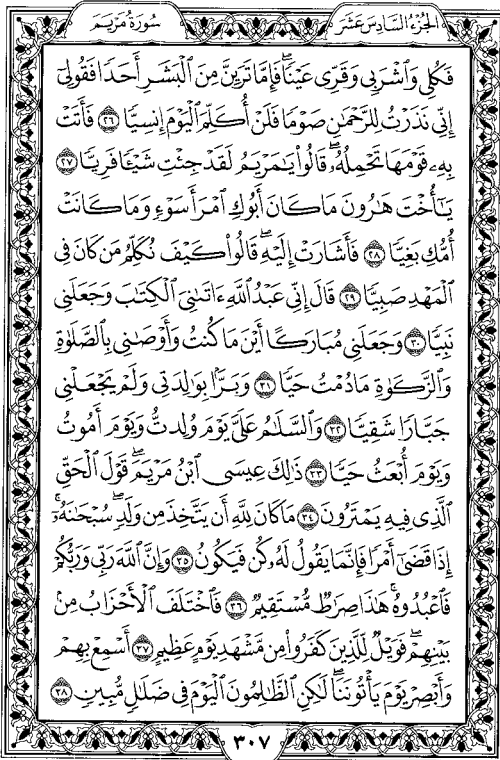 سُورَةُ مَرْيَمَ
الجُزْءُ السَّادِسَ عَشَرَ
فَكُلِي وَٱشْرَبِي وَقَرِّي عَيْنًاۖ فَإِمَّا تَرَيِنَّ مِنَ ٱلْبَشَرِ أَحَدًا فَقُولِيٓ
إِنِّي نَذَرْتُ لِلرَّحْمَٰنِ صَوْمًا فَلَنْ أُكَلِّمَ ٱلْيَوْمَ إِنسِيًّا ٢٦ فَأَتَتْ
بِهِۦ قَوْمَهَا تَحْمِلُهُۥۖ قَالُوا۟ يَٰمَرْيَمُ لَقَدْ جِئْتِ شَيْـًٔا فَرِيًّا ٢٧
يَٰٓأُخْتَ هَٰرُونَ مَا كَانَ أَبُوكِ ٱمْرَأَ سَوْءٍ وَمَا كَانَتْ
أُمُّكِ بَغِيًّا ٢٨ فَأَشَارَتْ إِلَيْهِۖ قَالُوا۟ كَيْفَ نُكَلِّمُ مَن كَانَ فِي
ٱلْمَهْدِ صَبِيًّا ٢٩ قَالَ إِنِّي عَبْدُ ٱللَّهِ ءَاتَىٰنِيَ ٱلْكِتَٰبَ وَجَعَلَنِي
نَبِيًّا ٣٠ وَجَعَلَنِي مُبَارَكًا أَيْنَ مَا كُنتُ وَأَوْصَٰنِي بِٱلصَّلَوٰةِ
وَٱلزَّكَوٰةِ مَا دُمْتُ حَيًّا ٣١ وَبَرًّۢا بِوَٰلِدَتِي وَلَمْ يَجْعَلْنِي
جَبَّارًا شَقِيًّا ٣٢ وَٱلسَّلَٰمُ عَلَيَّ يَوْمَ وُلِدتُّ وَيَوْمَ أَمُوتُ
وَيَوْمَ أُبْعَثُ حَيًّا ٣٣ ذَٰلِكَ عِيسَى ٱبْنُ مَرْيَمَۖ قَوْلَ ٱلْحَقِّ
ٱلَّذِي فِيهِ يَمْتَرُونَ ٣٤ مَا كَانَ لِلَّهِ أَن يَتَّخِذَ مِن وَلَدٍۖ سُبْحَٰنَهُۥٓۚ
إِذَا قَضَىٰٓ أَمْرًا فَإِنَّمَا يَقُولُ لَهُۥ كُن فَيَكُونُ ٣٥ وَإِنَّ ٱللَّهَ رَبِّي وَرَبُّكُمْ
فَٱعْبُدُوهُۚ هَٰذَا صِرَٰطٌ مُّسْتَقِيمٌ ٣٦ فَٱخْتَلَفَ ٱلْأَحْزَابُ مِنۢ
بَيْنِهِمْۖ فَوَيْلٌ لِّلَّذِينَ كَفَرُوا۟ مِن مَّشْهَدِ يَوْمٍ عَظِيمٍ ٣٧ أَسْمِعْ بِهِمْ
وَأَبْصِرْ يَوْمَ يَأْتُونَنَاۖ لَٰكِنِ ٱلظَّٰلِمُونَ ٱلْيَوْمَ فِي ضَلَٰلٍ مُّبِينٍ ٣٨
٣٠٧